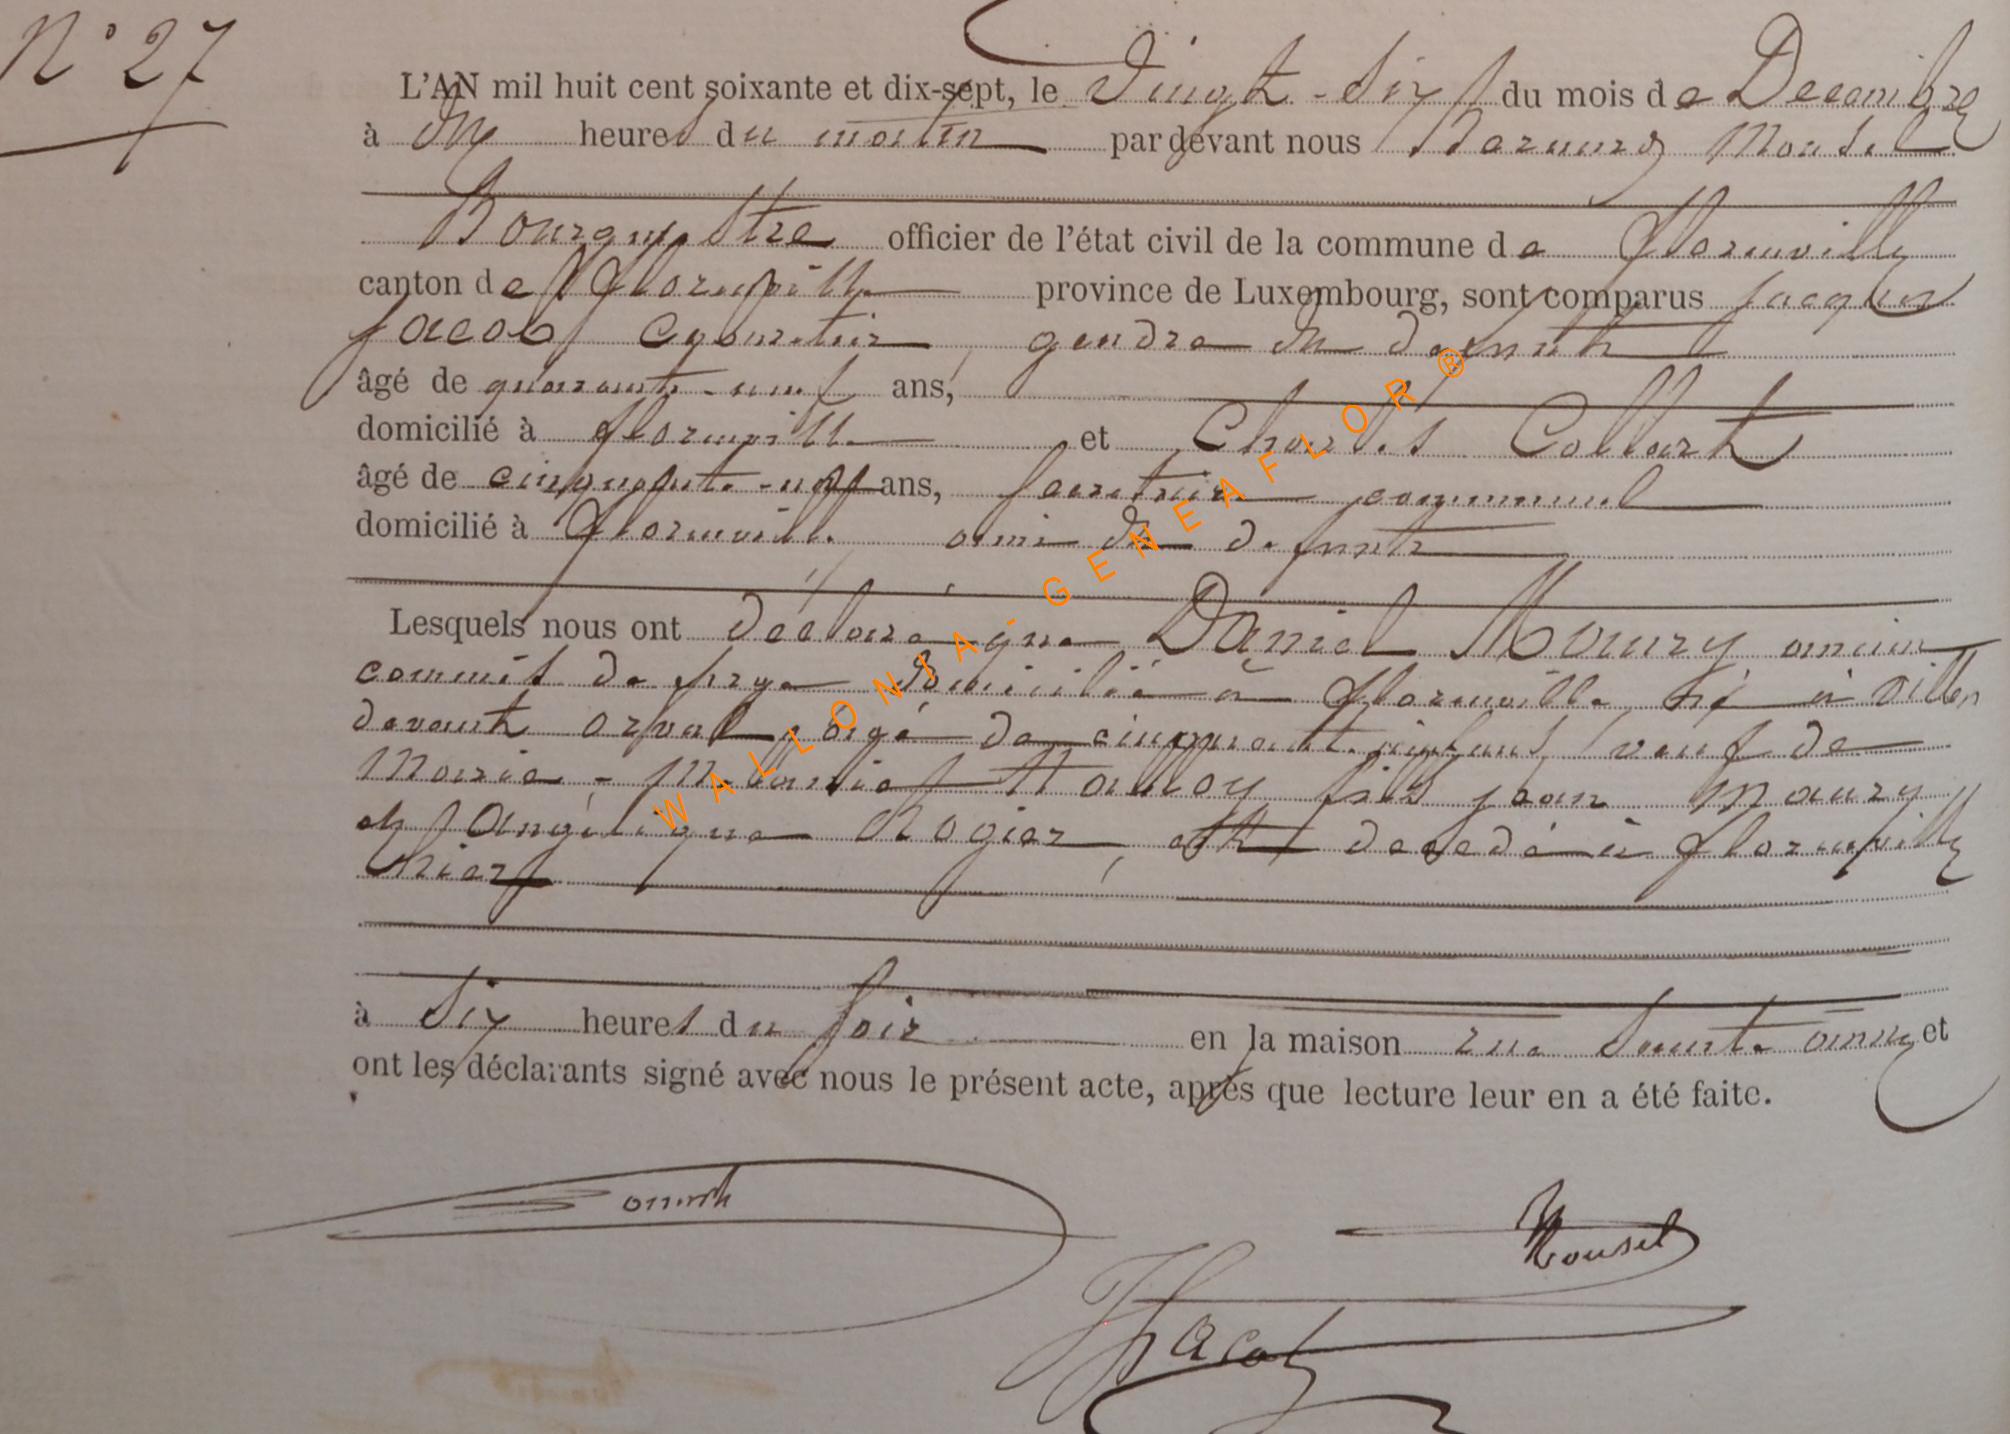 N° 27
L'AN mil huit cent soixante et dix-sept, le Vingt-six du mois de Decembre
à dix heures du matin par devant nous Bernard Mousel
Bourgmestre officier de l'état civil de la commune de florenville
canton de florenville province de Luxembourg, sont comparus Jacques
Jacob géometre, gendre du defunt
âgé de quarante-neuf ans,
domicilié à florenville et Charles Collart
âgé de cinquante-neuf ans, secretaire communal
domicilié à florenville, ami du defunt
Lesquels nous ont déclaré que Daniel Maury ancien
commis de forge domicilié à florenville, né à Villers
devant orval, âgé de cinquante ans, veuf de
Marie-Melanie Halloy fils jean Maury
et Angélique Rogier, est decedé à florenville
hier
à six heures du soir en la maison rue Sainte anne, et
ont les déclarants signé avec nous le présent acte, après que lecture leur en a été faite.
Mousel
Jacob
WALLONIA - GENEAFLOR ®